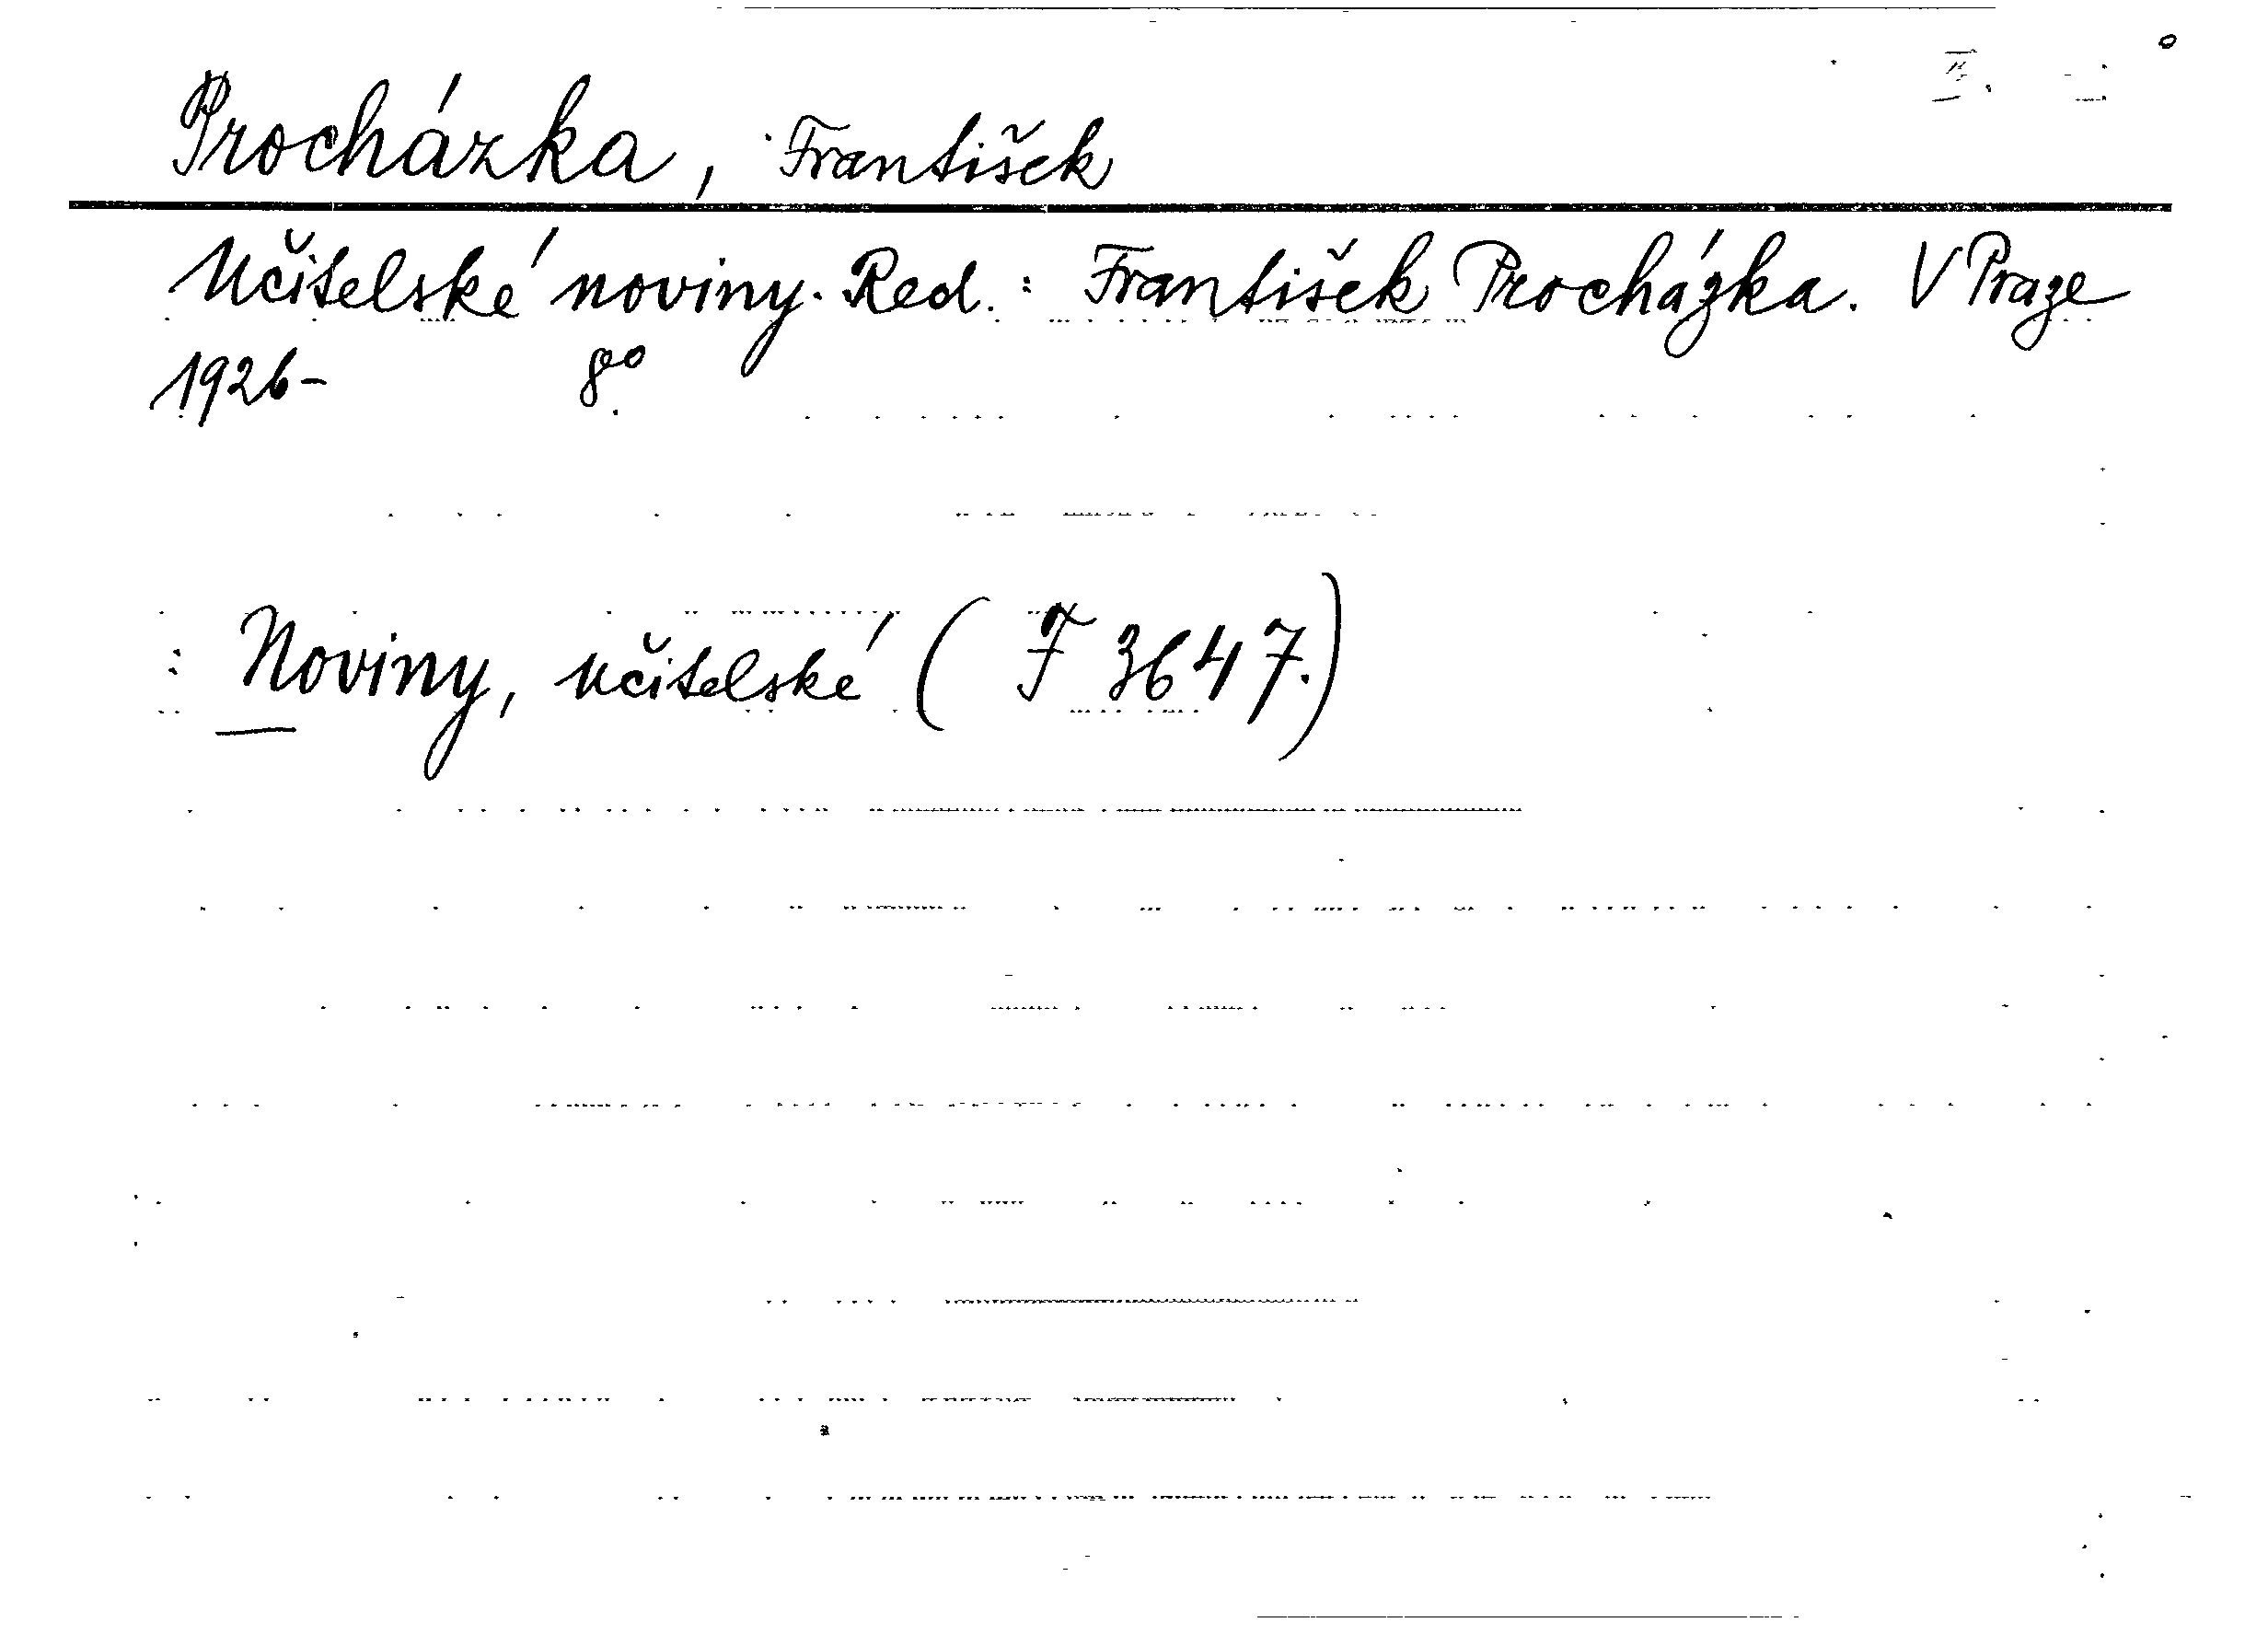 Procházka, František
Učitelské noviny. Red.: František Procházka. V Praze
1926- 8°.
: Noviny, učitelské (F 3647.)